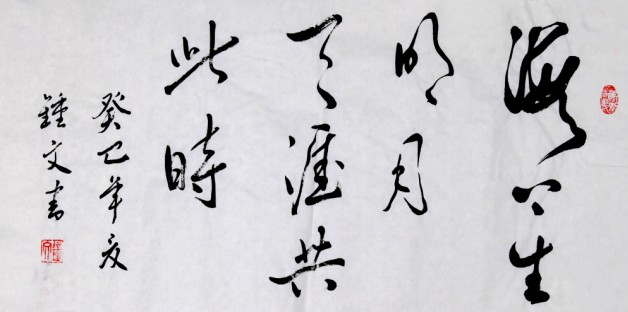 海上生
明月
天涯共
此時
癸巳年夏
鍾文書